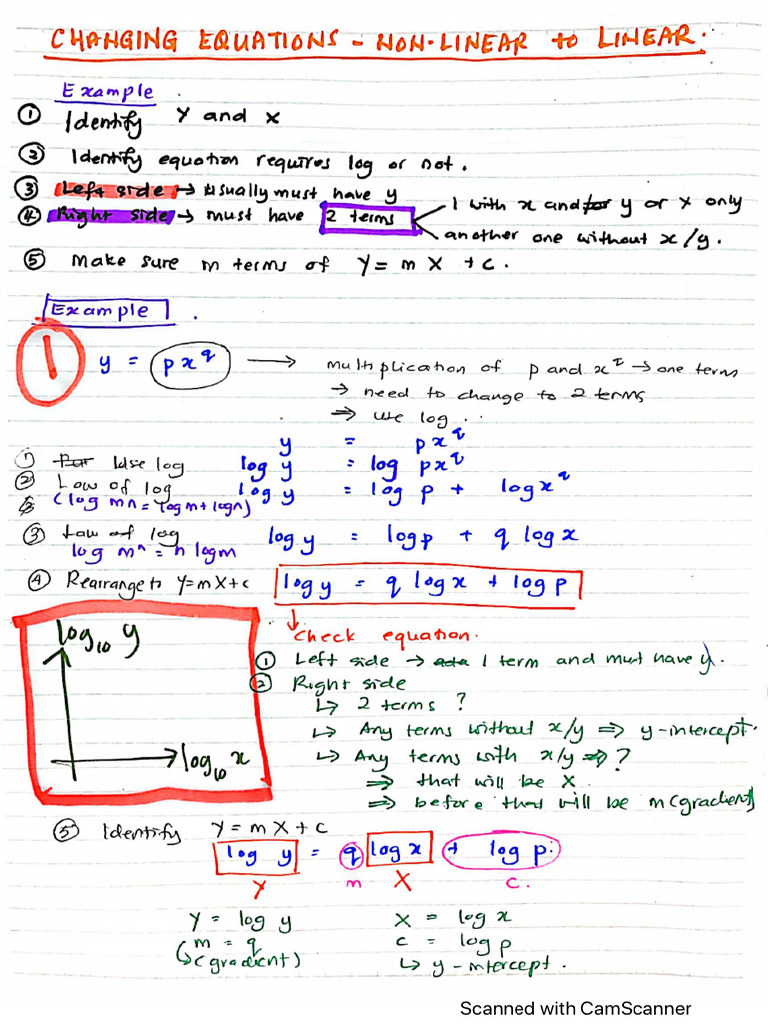 CHANGING EQUATIONS - NON-LINEAR to LINEAR.
Example.
① Identify Y and x
② Identify equation requires log or not.
③ Left side → usually must have y
④ Right side → must have 2 terms
1 with x and y or x only
another one without x/y.
⑤ Make sure m terms of Y = m X + c.
Example.
1
y = px^q → multiplication of p and x^q → one terms
→ need to change to 2 terms
⇒ use log..
y = px^q
① Use log log y = log px^q
② Law of log log y = log p + log x^q
(log mn = log m + log n)
③ Law of log log y = log p + q log x
log mⁿ = n log m
④ Rearrange to Y=mX+c log y = q log x + log p
↓ Check equation.
① Left side → 1 term and must have y.
② Right side
↳ 2 terms ?
↳ Any terms without x/y ⇒ y-intercept.
↳ Any terms with x/y ⇒ ?
⇒ that will be X
⇒ before that will be m(gradient)
log₁₀ y
log₁₀ x
⑤ Identify Y = mX + c
log y = q log x + log p.
Y m X c.
Y = log y X = log x
m = q c = log p
↳(gradient) ↳ y-intercept.
Scanned with CamScanner